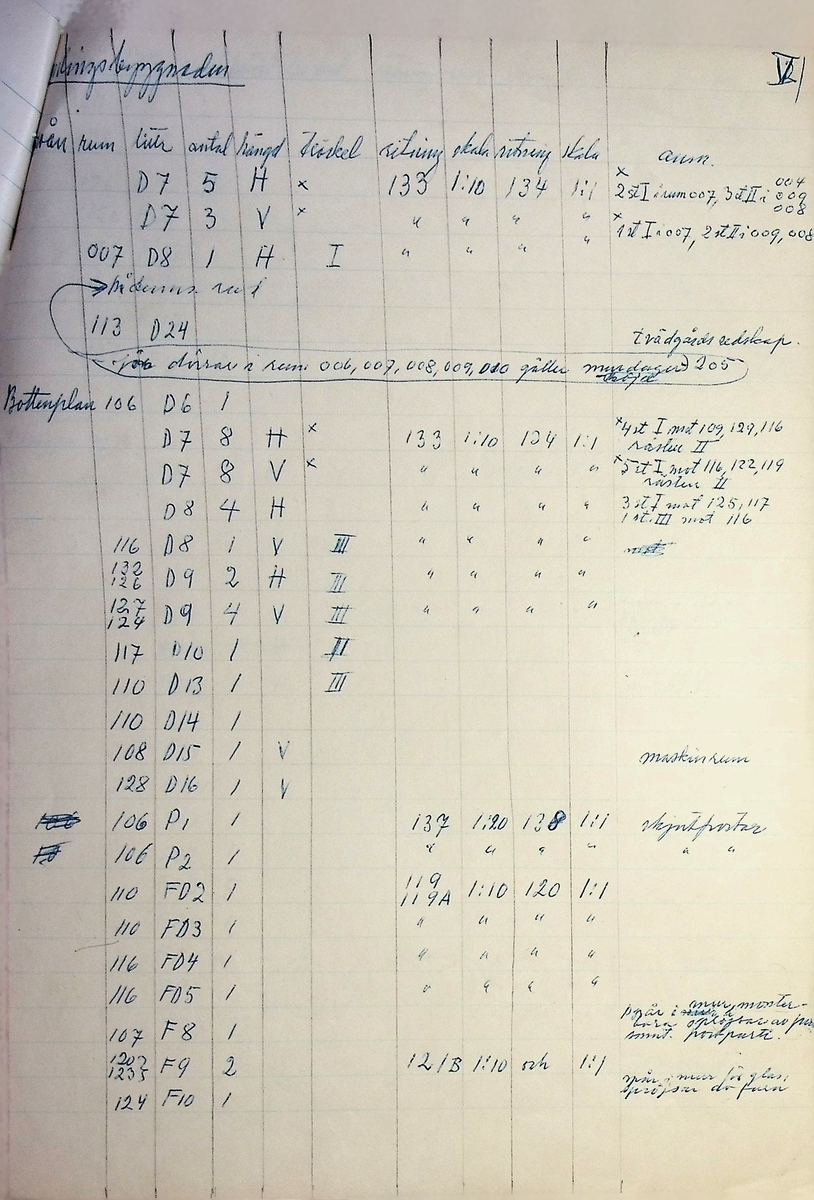 ningsbyggnaden
V
rum littr antal hängd tröskel ritning skala ritning skala anm.
D7 5 H x 133 1:10 134 1:1 x 2 st I i rum 007, 3 st II i 004 009 008
D7 3 V x " " " " x 1 st I i 007, 2 st II i 009, 008
007 D8 1 H I " " " "
113 D24 trädgårdsredskap.
dörrar i rum 006, 007, 008, 009, 010 gäller 205
Bottenplan 106 D6 1
D7 8 H x 133 1:10 134 1:1 x 4 st I mot 109, 129, 116
resten II
D7 8 V x " " " " x 5 st I mot 116, 122, 119
resten II
D8 4 H " " " " 3 st I mot 125, 117
1 st. III mot 116
116 D8 1 V III " " " "
132
126 D9 2 H III " " " "
127
124 D9 4 V III " " " "
117 D10 1 II
110 D13 1 III
110 D14 1
108 D15 1 V maskinrum
128 D16 1 V
106 P1 1 137 1:20 138 1:1 skjutportar
106 P2 1 " " " " " "
110 FD2 1 119
119A 1:10 120 1:1
110 FD3 1 " " " "
116 FD4 1 " " " "
116 FD5 1 " " " "
107 F8 1 spår i mur,
F9 2 121B 1:10 och 1:1
spår i mur för glas,
124 F10 1 spröjsar